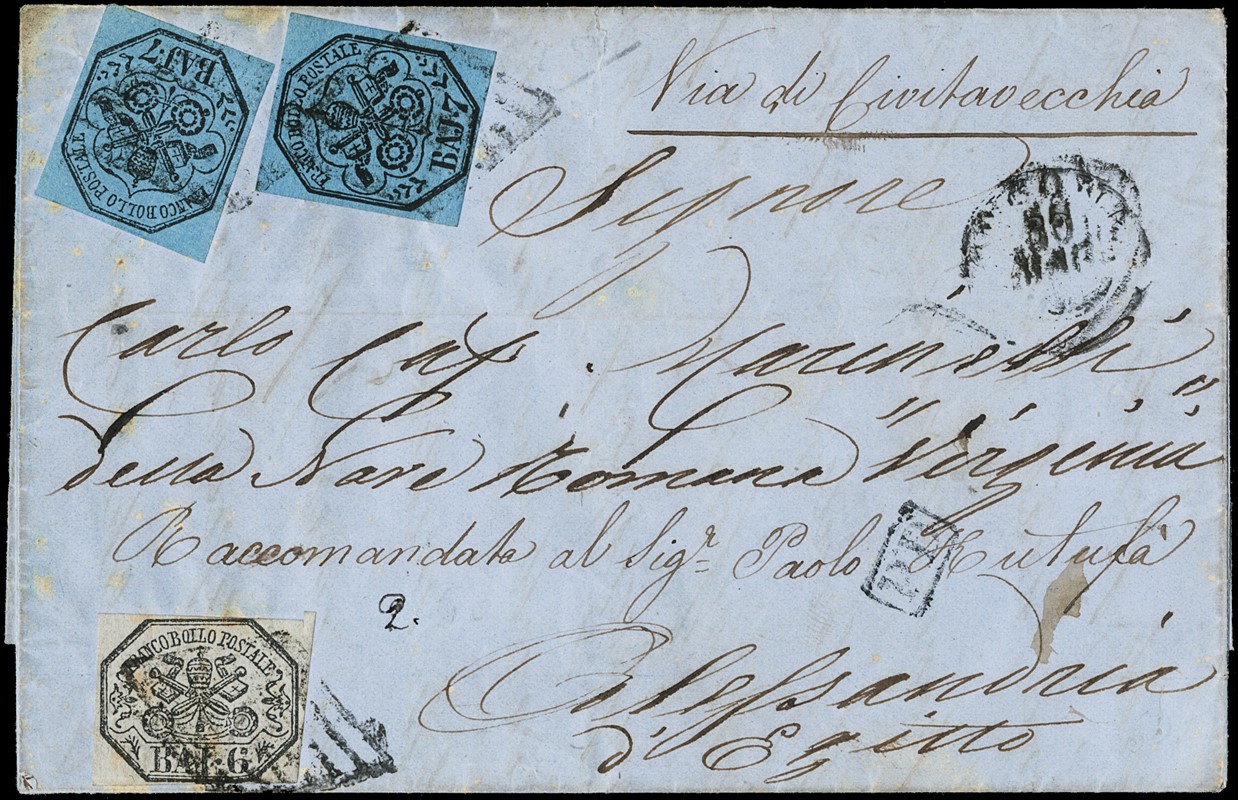 FRANCO BOLLO POSTALE
BAJ. 7
FRANCO BOLLO POSTALE
BAJ. 7
Via di Civitavecchia
Signore
Carlo Cap.
della Nave Romana "Virginia"
Raccomandata al Sigr. Paolo
2.
Alessandria
d'Egitto
FRANCO BOLLO POSTALE
BAJ. 6